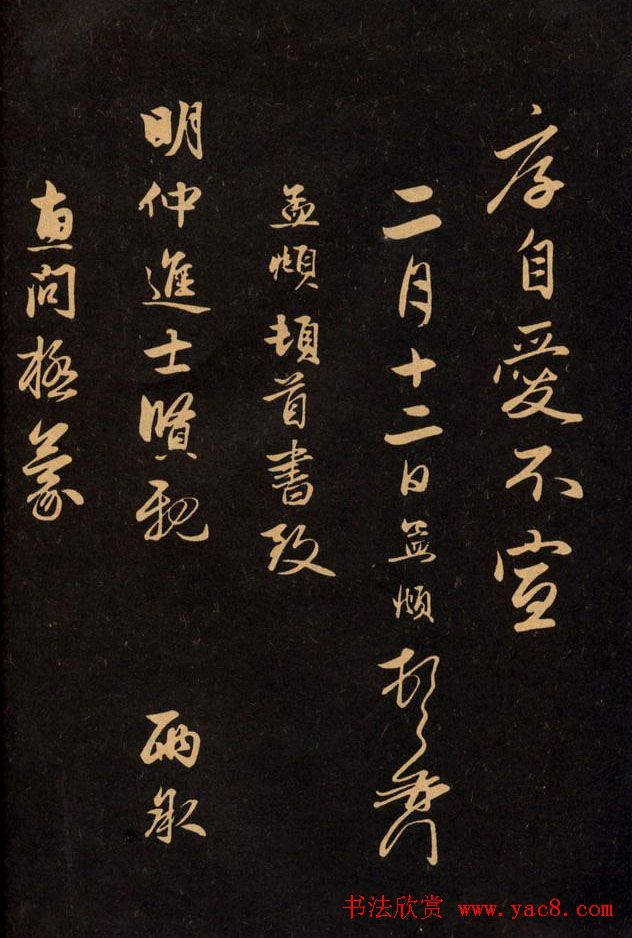 序自愛不宣
二月十二日孟頫
孟頫頓首書致
明仲進士賢親 兩承
惠問極蒙
书法欣赏 www.yac8.com